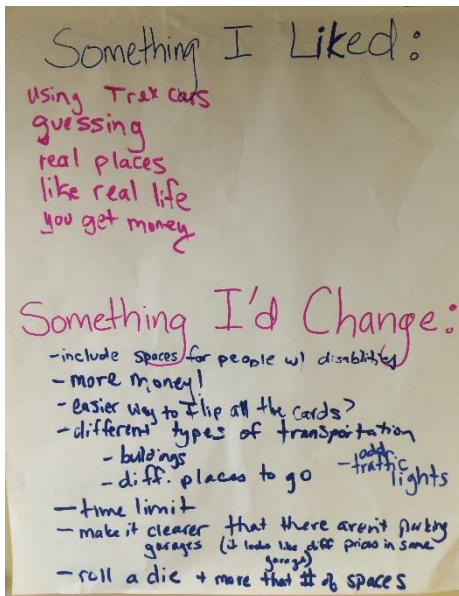 Something I Liked:
using Trex cars
guessing
real places
like real life
you get money
Something I'd Change:
-include spaces for people w/ disabilities
-more money!
-easier way to flip all the cards?
-different types of transportation
-buldings
-diff. places to go
-add traffic lights
-time limit
-make it clearer that there aren't parking
garages (it looks like diff prices in same
garage)
-roll a die + move that # of spaces